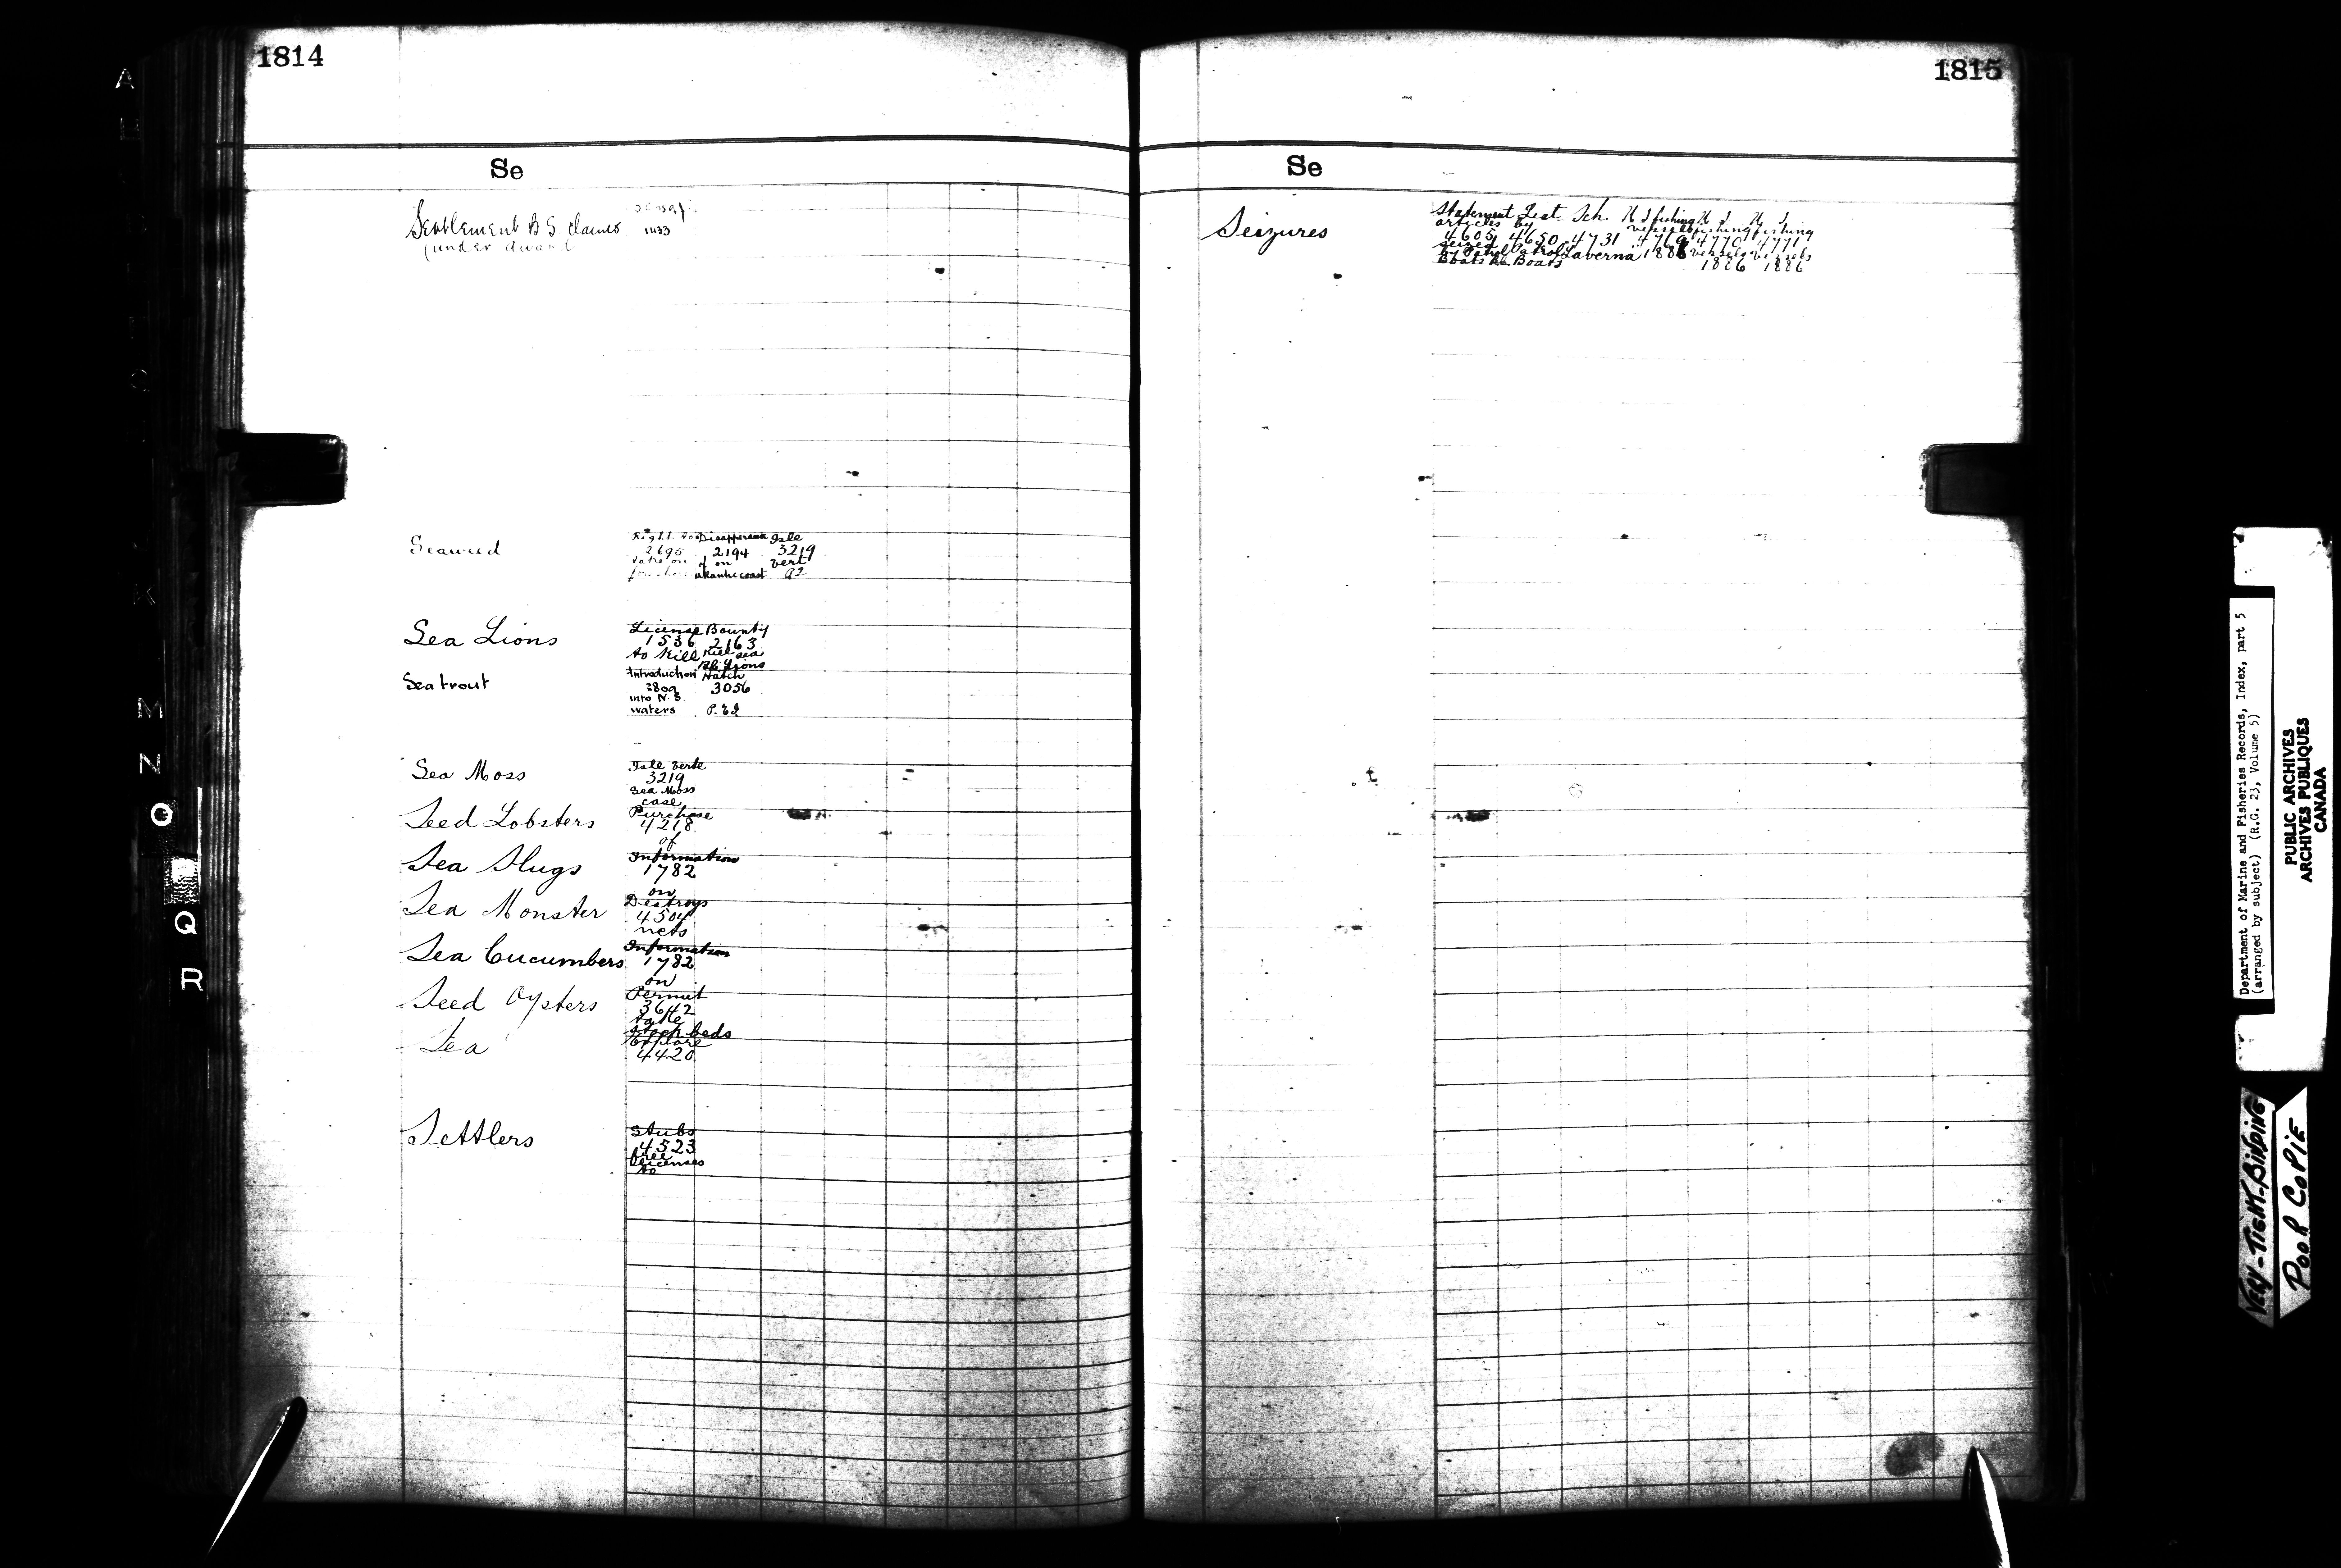 1814
Se
Settlement B S. Claims 1433
(under award
Seaweed
Right to Disappearance Isle
2695 2194 3219
take on of on Vert
atlantic coast
Sea Lions
License Bounty
1536 2163
to kill kill sea
Lions
Sea trout
Introduction Hatch
2809 3056
into N.S.
waters P.E.I
Sea Moss
Isle Verte
3219
Sea Moss
case
Seed Lobsters
Purchase
4218
of
Sea Slugs
Information
1782
on
Sea Monster
Destroys
4504
nets
Sea Cucumbers
Information
1782
on
Seed Oysters
Permit
3642
take
stock beds
Sea
Explore
4420
Settlers
Stubs
4523
free
licenses
to
1815
Se
Seizures
Statement List Sch. U S fishing U S U S
articles by vessels fishing fishing
4605 4650 4731 4769 4770 4771
seized Patrol Laverna 1886 vessels vessels
by Patrol Boats 1886 1886
Boats
A
M
N
O
Q
R
Department of Marine and Fisheries Records, Index, part 5
(arranged by subject) (R.G. 23, Volume 5)
PUBLIC ARCHIVES
ARCHIVES PUBLIQUES
CANADA
VERY-TIGHT-BINDING
POOR COPIE